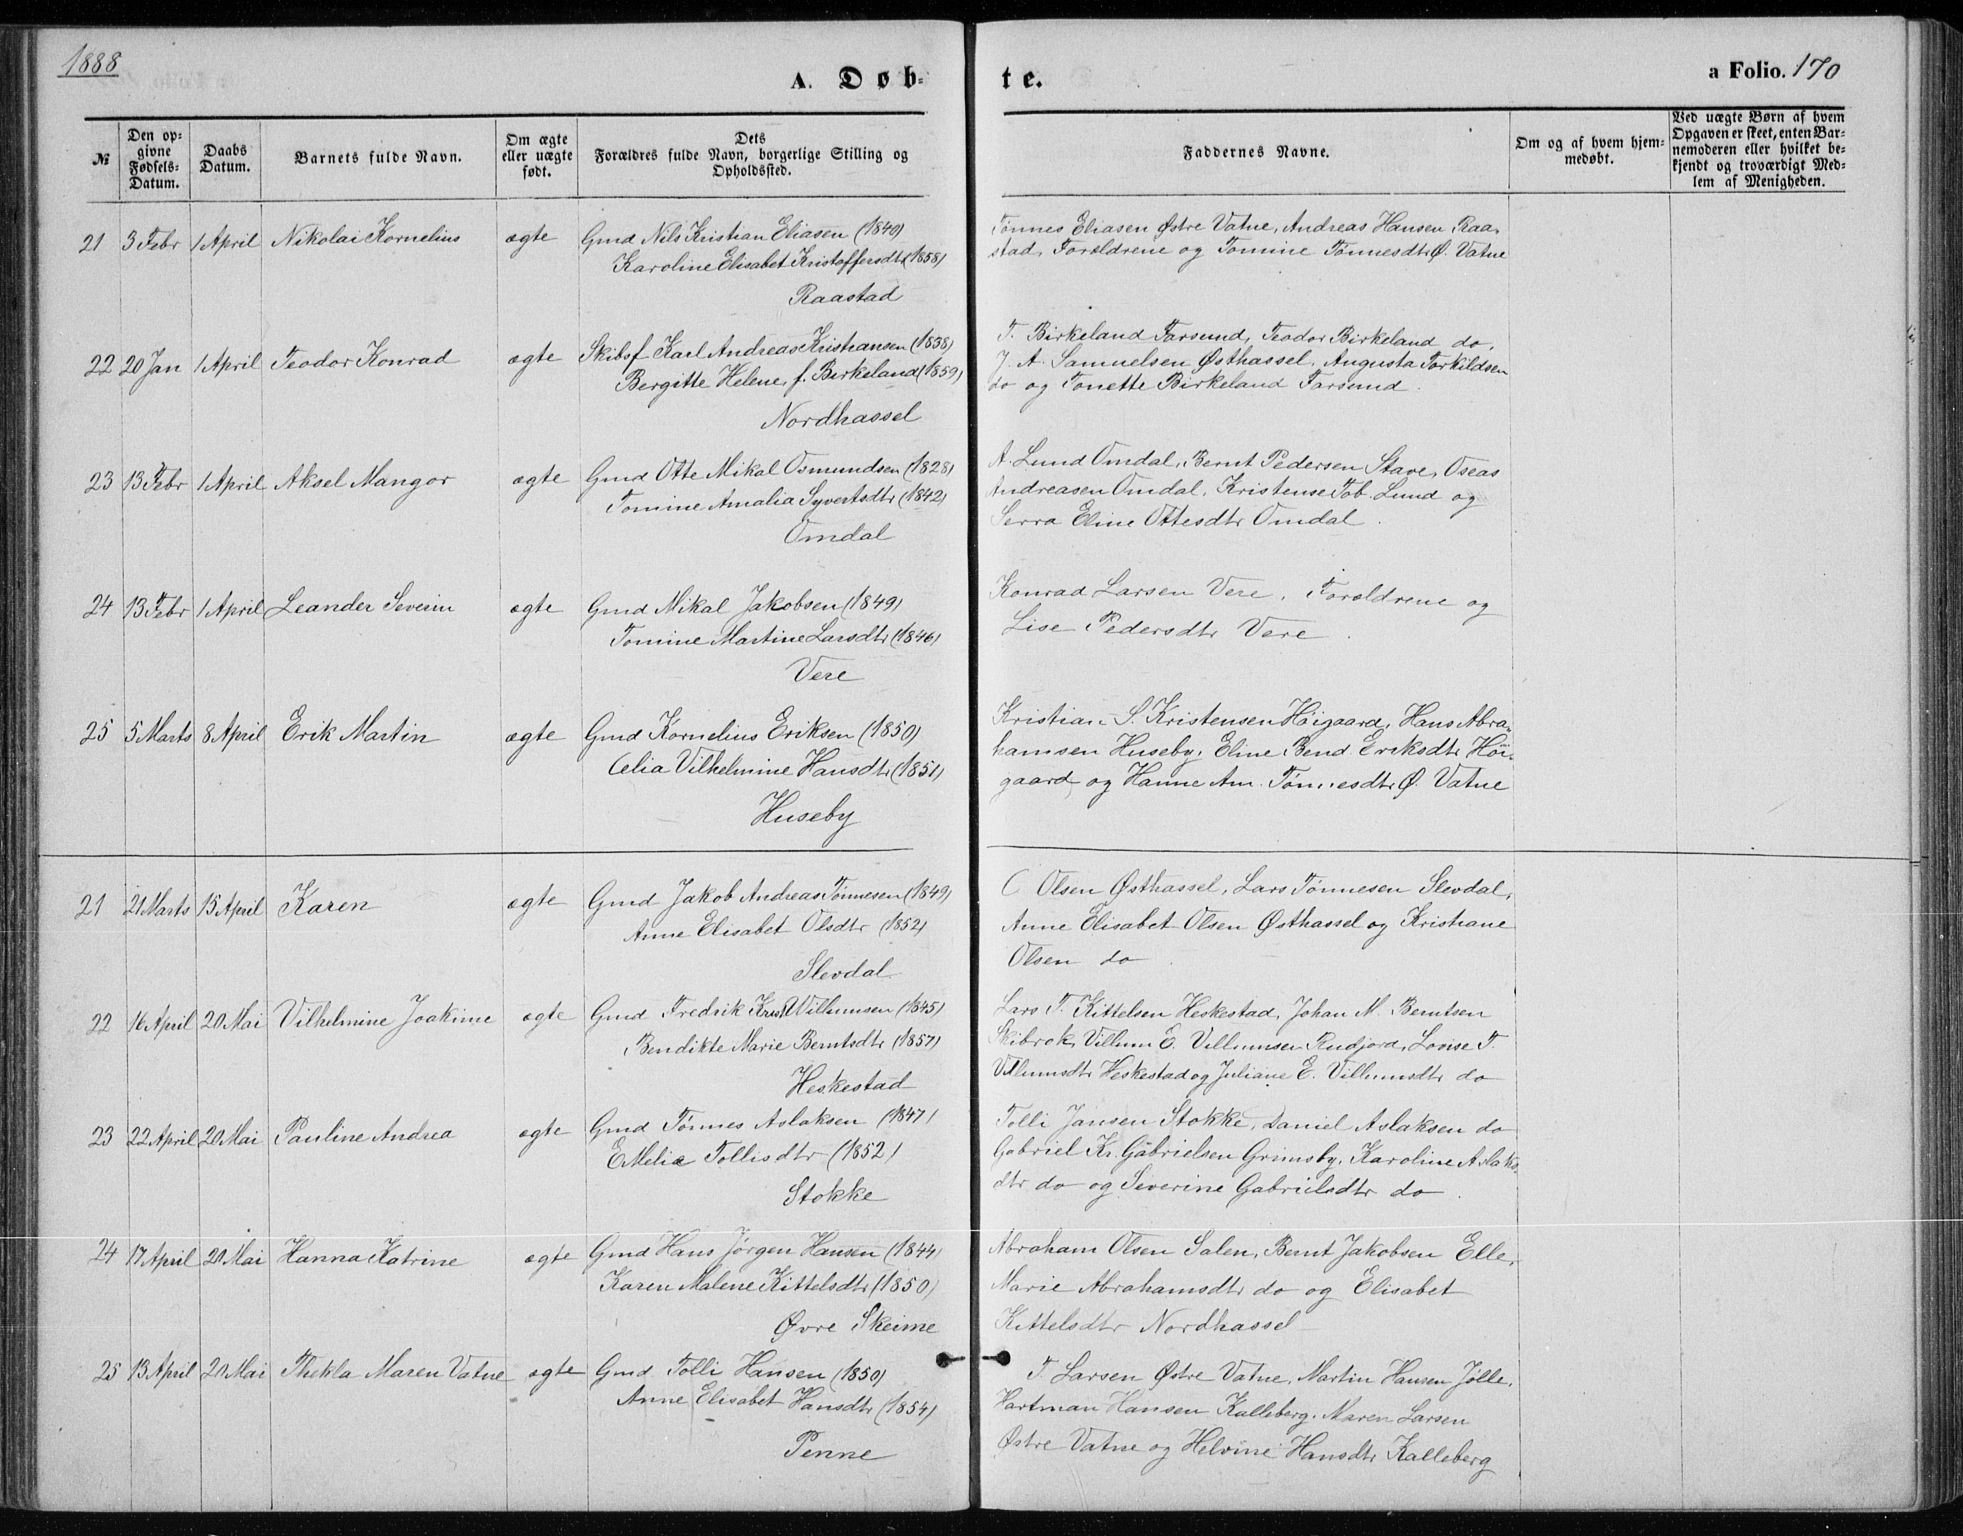 1888
A. Døb-
te.
a Folio. 170
№
Den op-
givne
Fødsels-
Datum.
Daabs
Datum.
Barnets fulde Navn.
Om ægte
eller uægte
født.
Dets
Forældres fulde Navn, borgerlige Stilling og
Opholdssted.
Faddernes Navne.
Om og af hvem hjem-
medøbt.
Ved uægte Børn af hvem
Opgaven er skeet, enten Bar-
nemoderen eller hvilket be-
kjendt og troværdigt Med-
lem af Menigheden.
21 3 Febr 1 April Nikolai Kornelius ægte Gmd Nils Kristian Eliasen (1849)
Karoline Elisabet Kristoffersdtr (1858)
Raastad
Tønnes Eliasen Østre Vatne, Andreas Hansen Raa-
stad, Forældrene og Tomine Tønnesdtr Ø. Vatne
22 20 Jan 1 April Teodor Konrad ægte Skibsf Karl Andreas Kristiansen (1838)
Bergitte Helene f. Birkeland (1859)
Nordhassel
T. Birkeland Farsund, Teodor Birkeland do,
J. A. Samuelsen Østhassel, Augusta Torkildsen
do og Tonette Birkeland Farsund.
23 13 Febr 1 April Aksel Mangor ægte Gmd Otte Mikal Osmundsen (1828)
Tomine Amalia Syvertsdtr (1842)
Omdal
A. Lund Omdal, Bernt Pedersen Stave, Oseas
Andreasen Omdal, Kristense Tob. Lund og
Serra Eline Ottesdtr Omdal.
24 13 Febr 1 April Leander Severin ægte Gmd Mikal Jakobsen (1849)
Tomine Martine Larsdtr (1846)
Vere
Konrad Larsen Vere, Forældrene og
Lise Pedersdtr Vere.
25 5 Marts 8 April Erik Martin ægte Gmd Kornelius Eriksen (1850)
Celia Vilhelmine Hansdtr (1851)
Huseby
Kristian S. Kristensen Høigaard, Hans Abra-
hamsen Huseby, Eline Bend Eriksdtr Høi-
gaard og Hanne Am. Tønnesdtr Ø. Vatne
21 21 Marts 15 April Karen ægte Gmd Jakob Andreas Tønnesen (1849)
Anne Elisabet Olsdtr (1852)
Slevdal
C Olsen Østhassel, Lars Tønnesen Slevdal,
Anne Elisabet Olsen Østhassel og Kristiane
Olsen do
22 16 April 20 Mai Vilhelmine Joakime ægte Gmd Fredrik Krist Villumsen (1845)
Bendikte Marie Berntsdtr (1857)
Heskestad
Lars T. Kittelsen Heskestad, Johan M. Berntsen
Skibrok, Villum E. Villumsen Rudjord, Lovise T.
Villumsdtr Heskestad og Juliane E. Villumsdtr do
23 22 April 20 Mai Pauline Andrea ægte Gmd Tønnes Aslaksen (1847)
Emelie Tollisdtr (1852)
Stokke
Tolli Jansen Stokke, Daniel Aslaksen do
Gabriel Kr. Gabrielsen Grimsby, Karoline Aslaks-
dtr do og Severine Gabrielsdtr do.
24 17 April 20 Mai Hanna Katrine ægte Gmd Hans Jørgen Hansen (1844)
Karen Malene Kittelsdtr (1850)
Øvre Skeime
Abraham Olsen Salen, Bernt Jakobsen Elle,
Marie Abrahamsdtr do og Elisabet
Kittelsdtr Nordhassel
25 13 April 20 Mai Thekla Maren Vatne ægte Gmd Tolli Hansen (1850)
Anne Elisabet Hansdtr (1854)
Penne
T Larsen Østre Vatne, Martin Hansen Jølle,
Hartman Hansen Kalleberg, Maren Larsen
Østre Vatne og Helvine Hansdtr Kalleberg